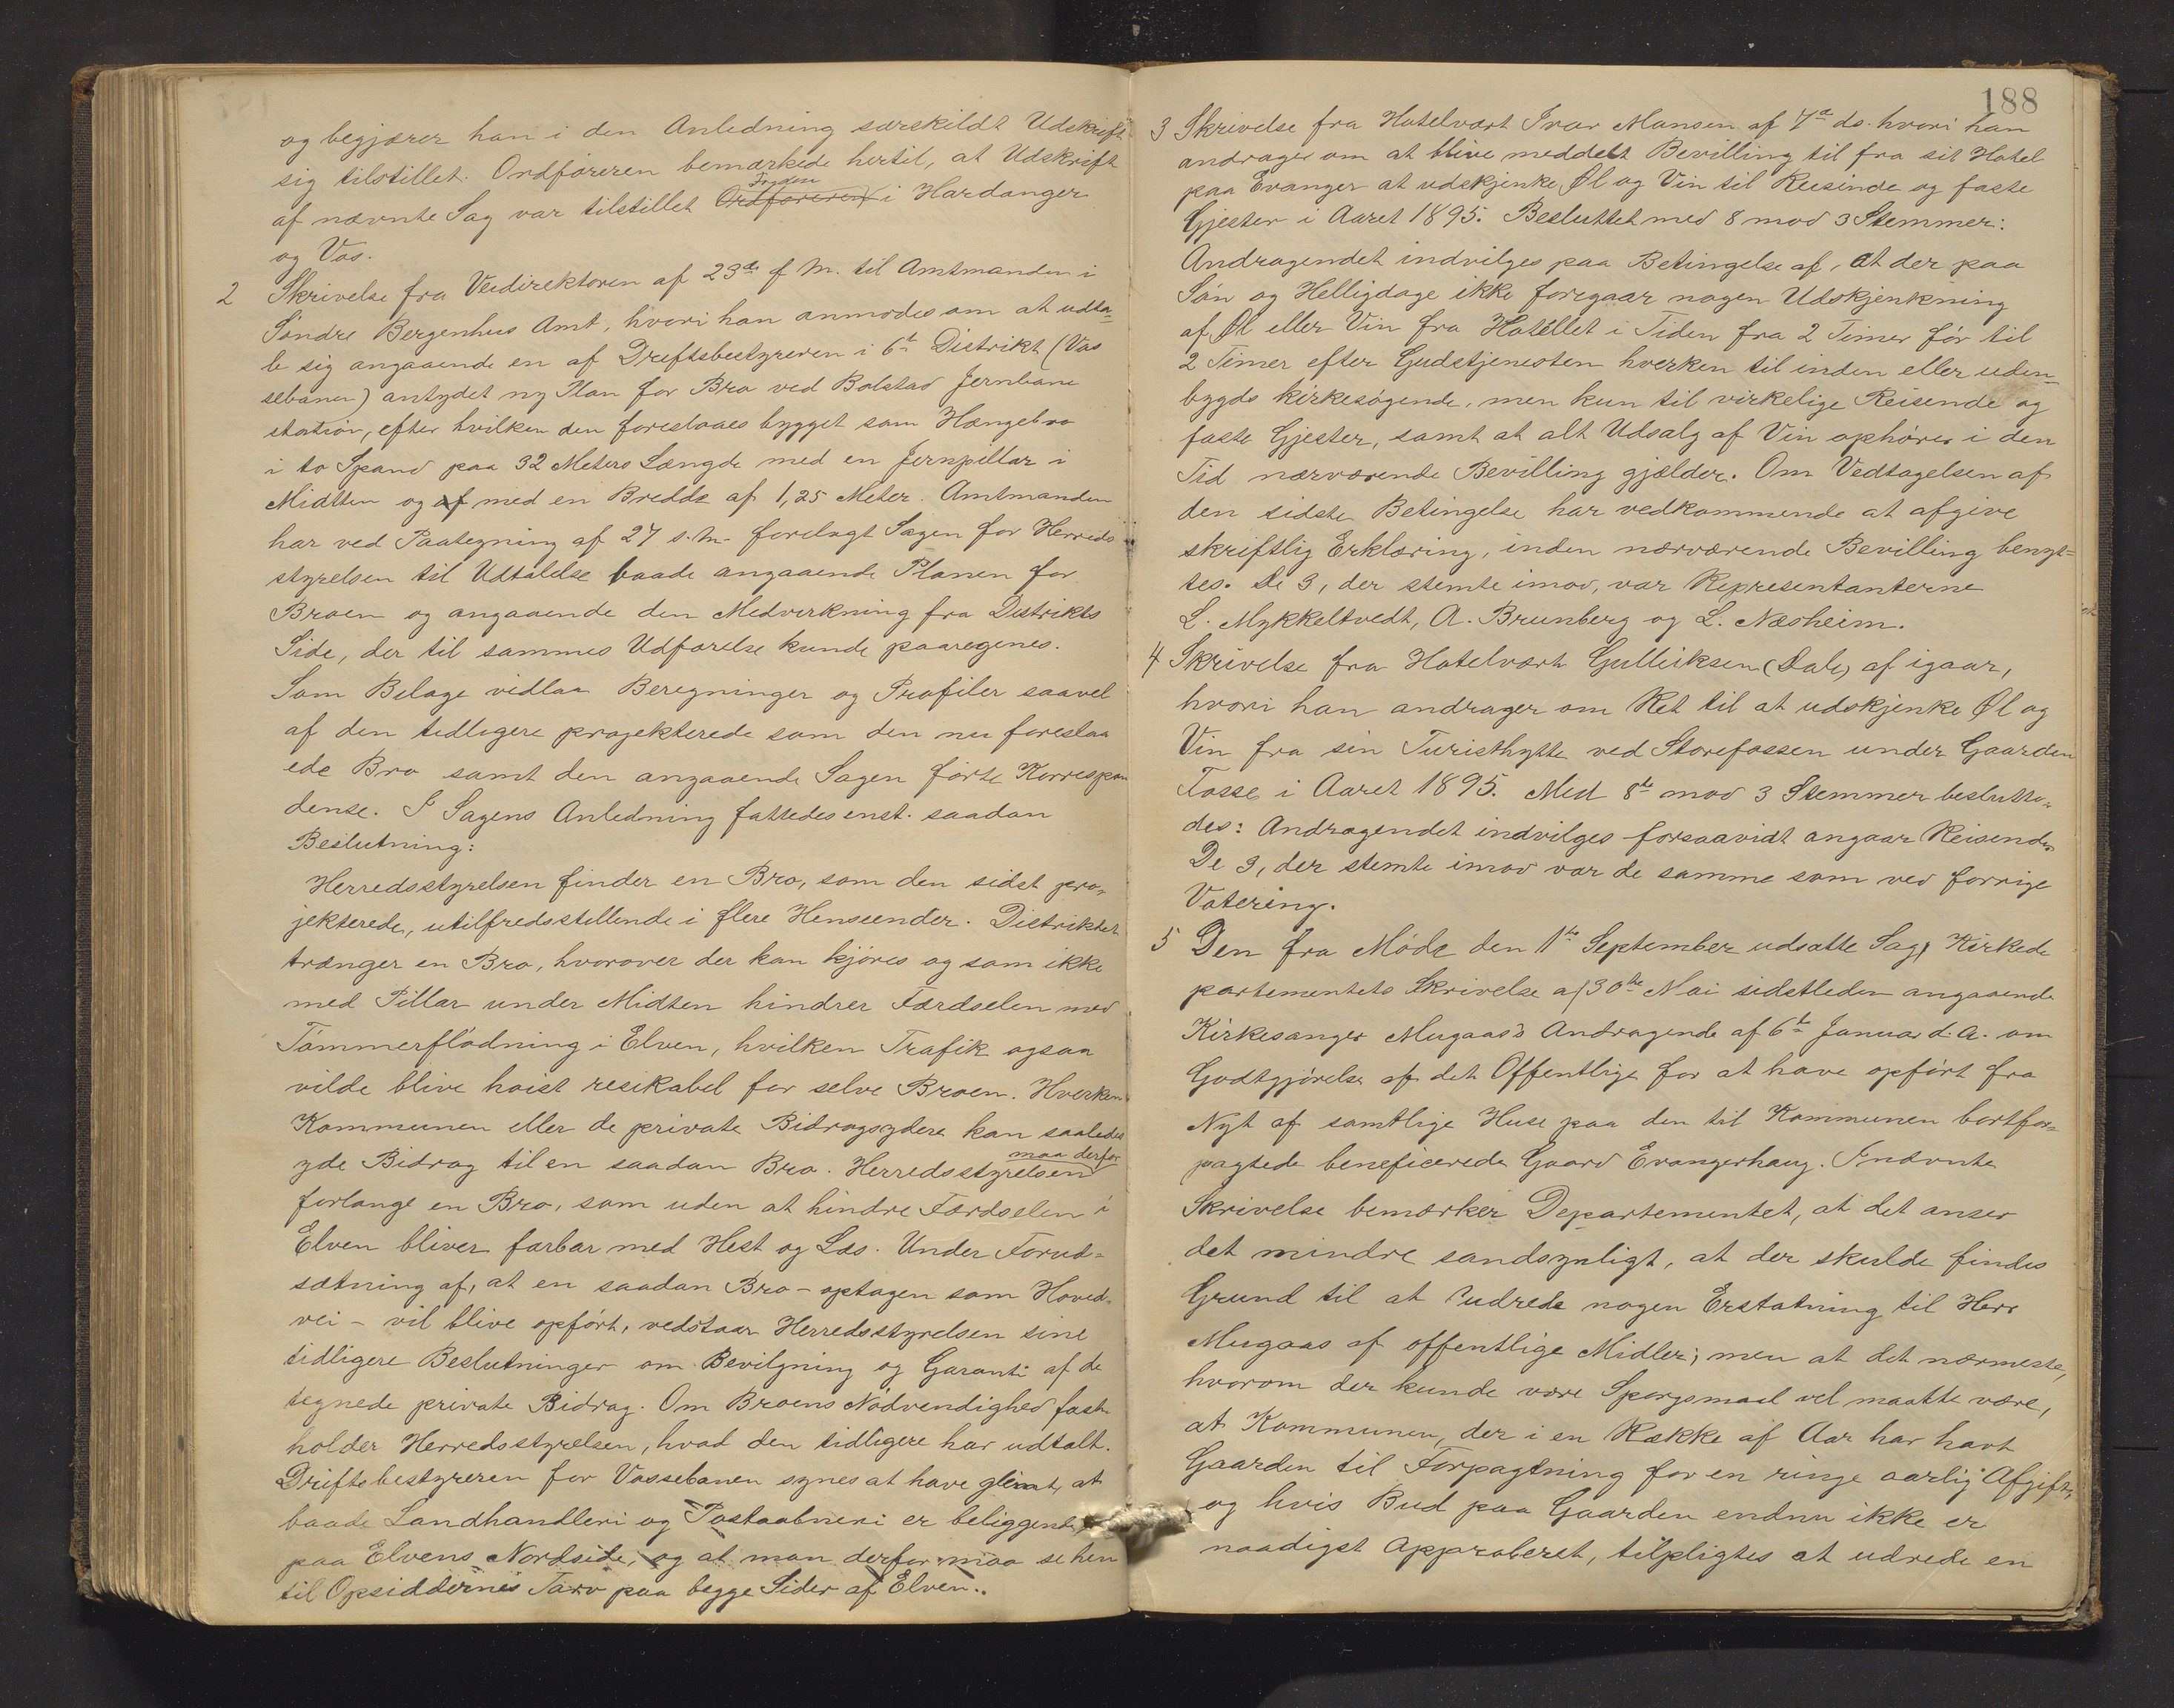 og begjærer han i den Anledning særskildt Udskrift
sig tilstillet. Ordføreren bemærkede hertil, at Udskrift
af nævnte Sag var tilstillet Ordføreren Fogden i Hardanger
og Vos.
2 Skrivelse fra Veidirektøren af 23de f. M. til Amtmanden i
Søndre Bergenhus Amt, hvori han anmodes om at udta-
le sig angaaende en af Driftsbestyreren i 6te Distrikt (Vos
sebanen) antydet ny Plan for Bro ved Bolstad Jernbane
station, efter hvilken den foreslaaes bygget som Hængebro
i to Spand paa 32 Meters Længde med en Jernpillar i
Midtten og af med en Bredde af 1,25 Meter. Amtmanden
har ved Paategning af 27 s. M. forelagt Sagen for Herreds
styrelsen til Udtalelse baade angaaende Planen for
Broen og angaaende den Medvirkning fra Distrikts
Side, der til sammes Udførelse kunde paaregnes.
Som Bilage vidlaa Beregninger og Profiler saavel
af den tidligere projekterede som den nu foreslaa
ede Bro samt den angaaende Sagen førte Korrespon
dense. I Sagens Anledning fattedes enst. saadan
Beslutning:
Herredsstyrelsen finder en Bro, som den sidst pro-
jekterede, utilfredsstillende i flere Henseender. Distriktet
trænger en Bro, hvorover der kan kjøres og som ikke
med Pillar under Midten hindrer Færdselen med
Tømmerflødning i Elven, hvilken Trafik ogsaa
vilde blive høist resikabel for selve Broen. Hverken
Kommunen eller de private Bidragsydere kan saaledes
yde Bidrag til en saadan Bro. Herredsstyrelsen maa derfor
forlange en Bro, som uden at hindre Færdselen i
Elven bliver farbar med Hest og Læs. Under Forud-
sætning af, at en saadan Bro - optagen som Hoved-
vei - vil blive opført, vedstaar Herredsstyrelsen sine
tidligere Beslutninger om Bevilgning og Garanti af de
tegnede private Bidrag. Om Broens Nødvendighed fast-
holder Herredsstyrelsen, hvad den tidligere har udtalt.
Driftsbestyreren for Vossebanen synes at have glemt, at
baade Landhandleri og Postaabneri er beliggende
paa Elvens Nordside, og at man derfor maa se hen
til Opsiddernes Tarv paa begge Sider af Elven.
188
3 Skrivelse fra Hotelvært Ivar Monsen af 7de ds. hvori han
andrager om at blive meddelt Bevilling til fra sit Hotel
paa Evanger at udskjenke Øl og Vin til Reisende og faste
Gjester i Aaret 1895. Besluttet med 8 mod 3 Stemmer:
Andragendet indvilges paa Betingelse af, at der paa
Søn og Helligdage ikke foregaar nogen Udskjenkning
af Øl eller Vin fra Hotellet i Tiden fra 2 Timer før til
2 Timer efter Gudstjenesten hverken til inden eller uden-
bygds kirkesøgende, men kun til virkelige Reisende og
faste Gjester, samt at alt Udsalg af Vin ophører i den
Tid nærværende Bevilling gjælder. Om Vedtagelsen af
den sidste Betingelse har vedkommende at afgive
skriftlig Erklæring, inden nærværende Bevilling benyt-
tes. De 3, der stemte imod, var Repræsentanterne
L. Mykkeltvedt, A. Brunberg og L. Næsheim.
4 Skrivelse fra Hotelvært Gulleiksen (Dale) af igaar,
hvori han andrager om Ret til at udskjenke Øl og
Vin fra sin Turisthytte ved Storefossen under Gaarden
Fosse i Aaret 1895. Med 8te mod 3 Stemmer beslutte-
des: Andragendet indvilges forsaavidt angaar Reisende.
De 3, der stemte imod var de samme som ved forrige
Votering.
5 Den fra Møde den 1ste September udsatte Sag, Kirkede
partementets Skrivelse af 30te Mai sidstleden angaaende
Kirkesanger Mugaas's Andragende af 6te Januar d. A. om
Godtgjørelse af det Offentlige for at have opført fra
Nyt af samtlige Huse paa den til Kommunen bortfor-
pagtede beneficerede Gaard Evangerhaug. I nævnte
Skrivelse bemærker Departementet, at det anser
det mindre sandsynligt, at der skulde findes
Grund til at udrede nogen Erstatning til Herr
Mugaas af offentlige Midler; men at det nærmeste,
hvorom der kunde være Spørgsmaal vel maatte være,
at Kommunen, der i en Række af Aar har havt
Gaarden til Forpagtning for en ringe aarlig Afgift,
og hvis Bud paa Gaarden endnu ikke er
naadigst approberet, tilpligtes at udrede en